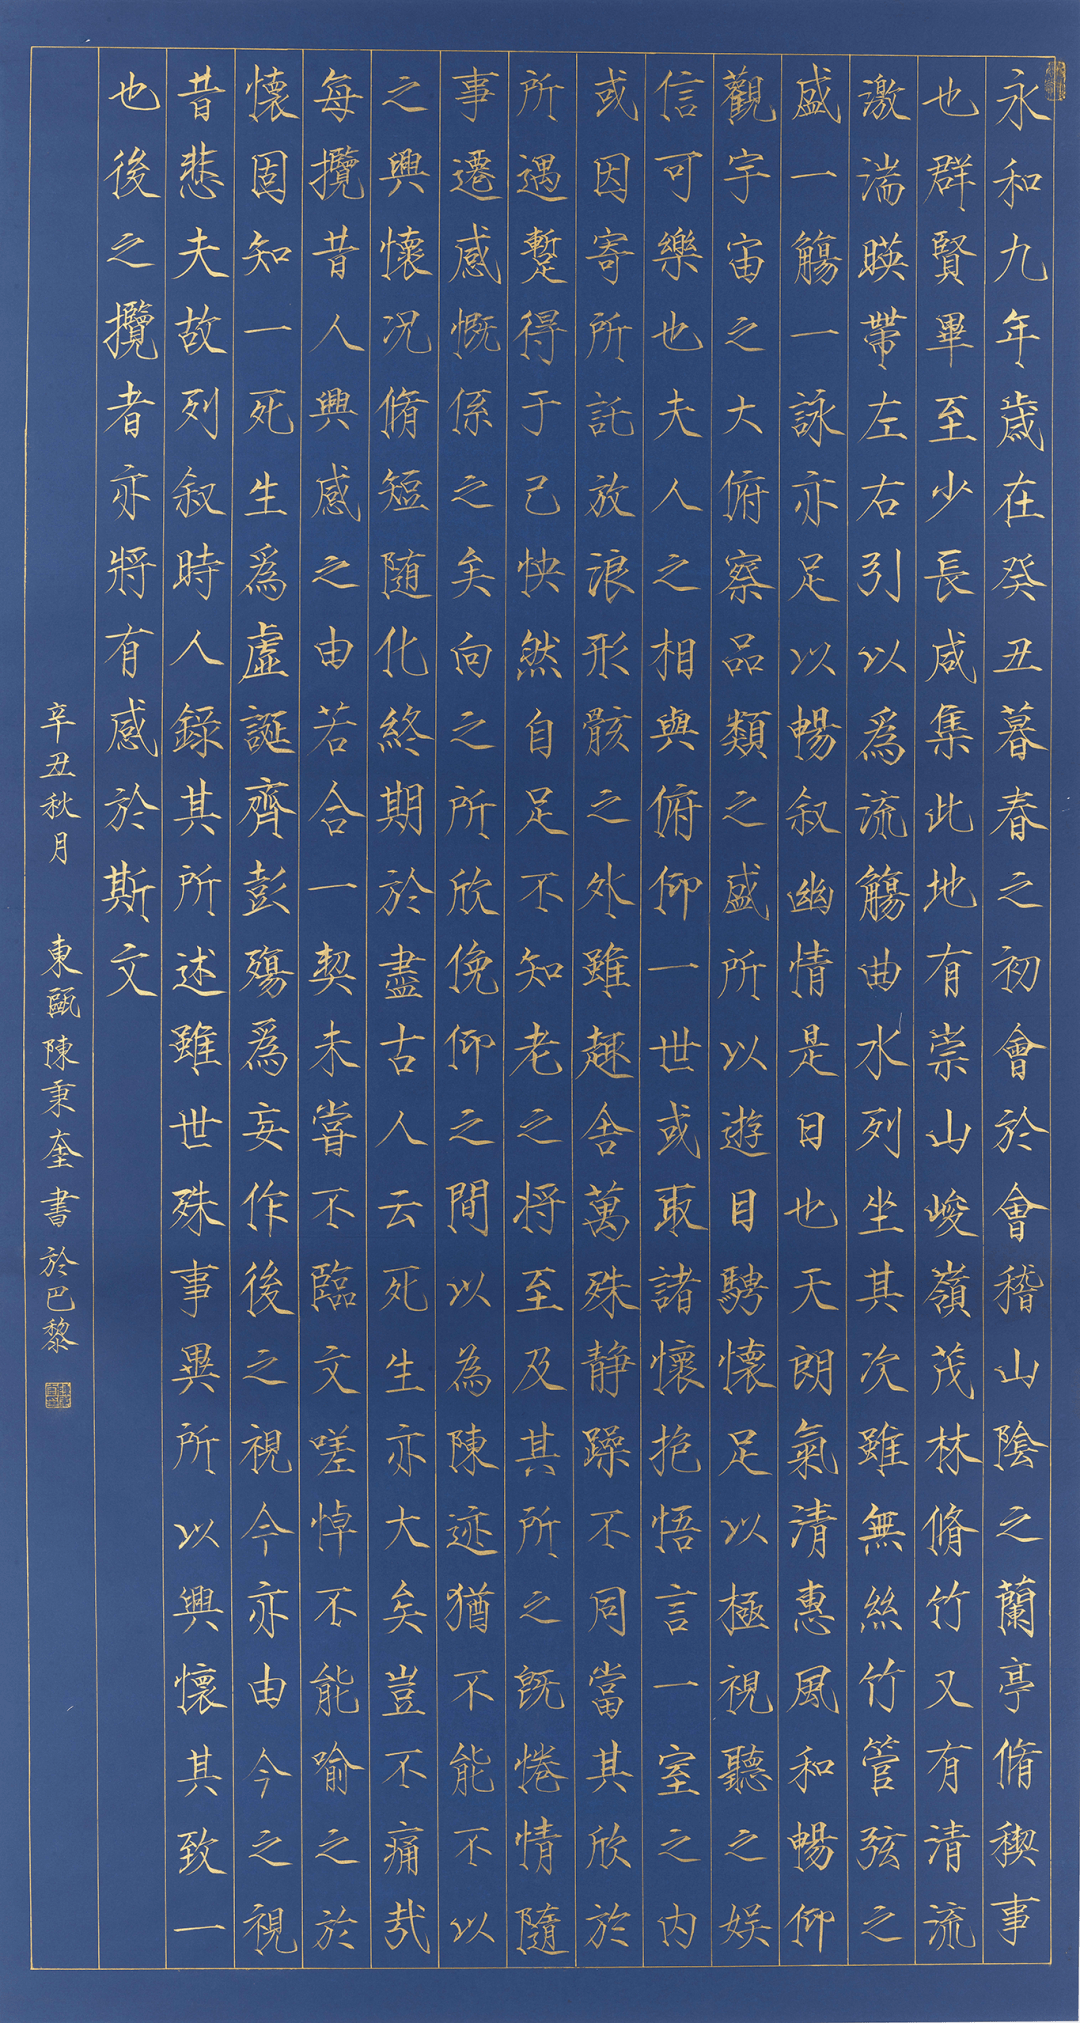 永和九年歲在癸丑暮春之初會於會稽山陰之蘭亭脩稧事
也群賢畢至少長咸集此地有崇山峻嶺茂林脩竹又有清流
激湍暎帶左右引以爲流觴曲水列坐其次雖無絲竹管弦之
盛一觴一詠亦足以暢叙幽情是日也天朗氣清惠風和暢仰
觀宇宙之大俯察品類之盛所以遊目騁懷足以極視聽之娛
信可樂也夫人之相與俯仰一世或取諸懷抱悟言一室之内
或因寄所託放浪形骸之外雖趣舍萬殊静躁不同當其欣於
所遇蹔得于己怏然自足不知老之将至及其所之既惓情隨
事遷感慨係之矣向之所欣俛仰之間以為陳迹猶不能不以
之興懷况脩短随化終期於盡古人云死生亦大矣豈不痛哉
每攬昔人興感之由若合一契未嘗不臨文嗟悼不能喻之於
懷固知一死生爲虛誕齊彭殤爲妄作後之視今亦由今之視
昔悲夫故列叙時人錄其所述雖世殊事異所以興懷其致一
也後之攬者亦將有感於斯文
辛丑秋月 東甌陳秉奎書於巴黎